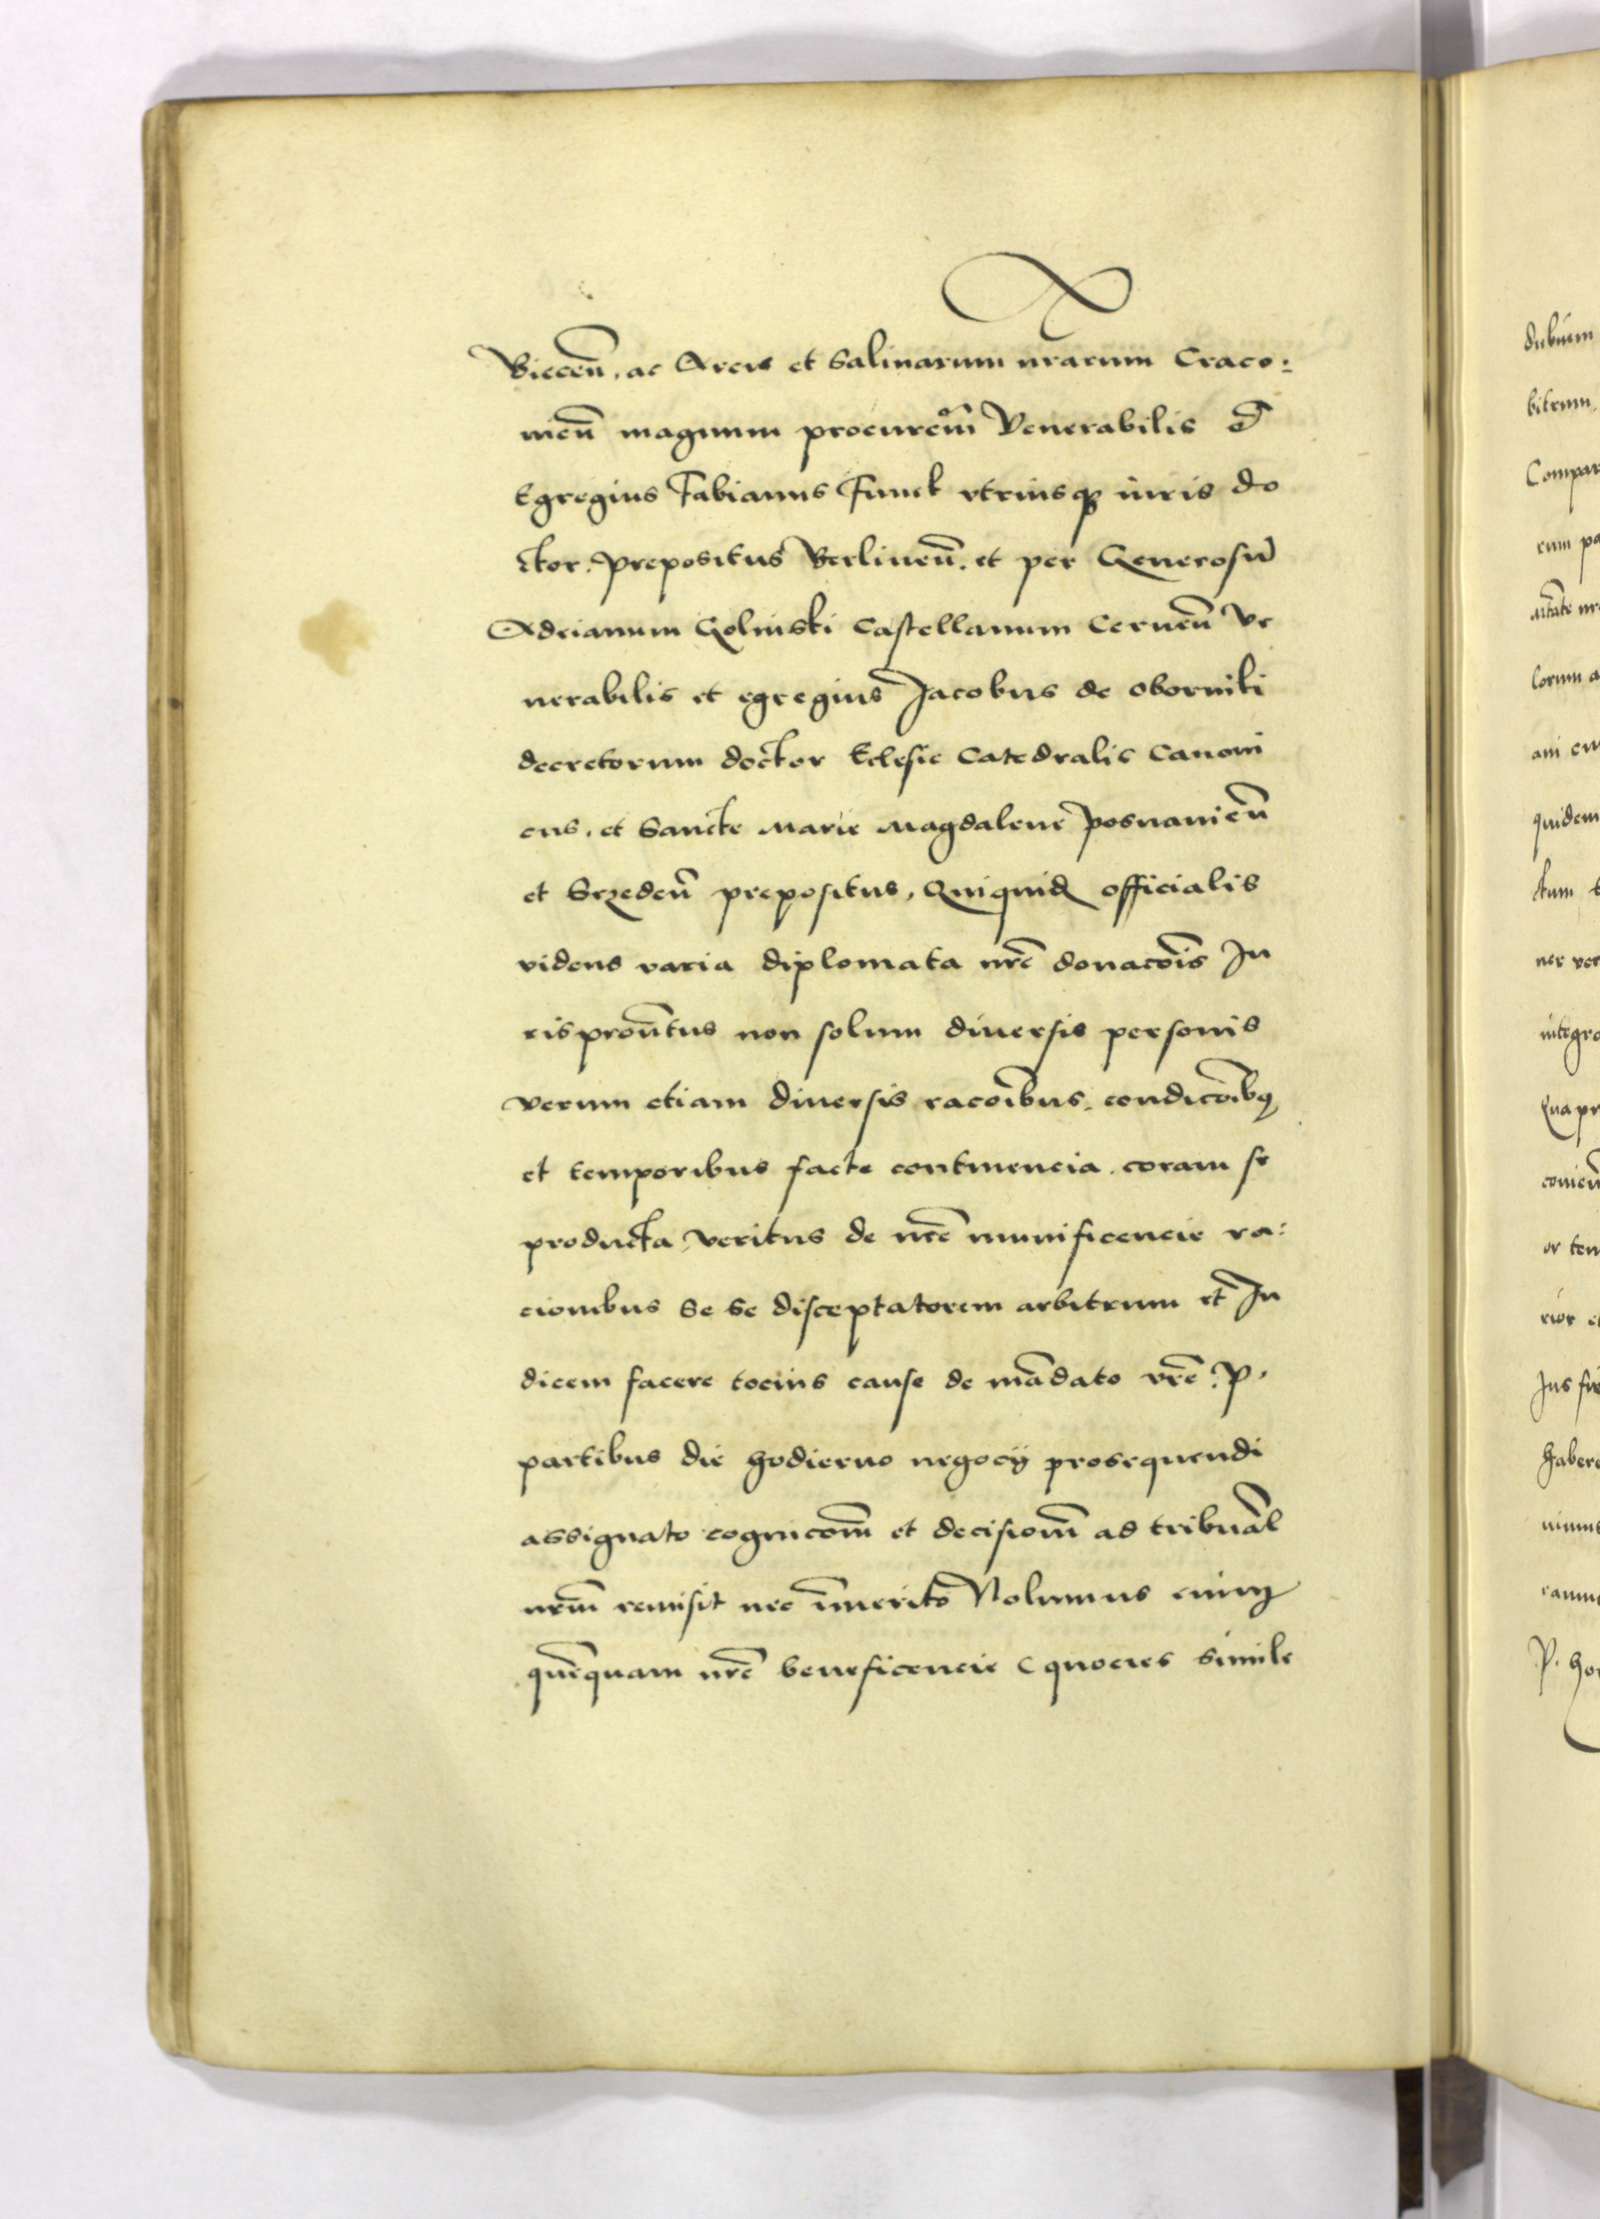 Biecen̄. ac Arcis et Salinarum nrarum Craco:
nien̄ magnum procurem̄ Venerabilis et
Egregius Fabianus Funck vtriusq3 iuris do
ctor. prepositus Berlinen̄. et per Generosū
Adrianum Golinski castellanum Cernen̄ Ve
nerabilis et egregius Jacobus de oborniki
decretorum doctor Eclesie Catedralis Canoni
cus. et Sancte Marie Magdalene Posnanien̄
et Srzeden̄ prepositus, Quiquid officialis
videns varia diplomata nrē donacōis In
risproūtus non solum diuersis personis
verum etiam diuersis racōibus. condicōibꝯ
et temporibus facte continencia. coram se
producta, veritus de nrē munificencie ra:
cionibus Se Se disceptatorem arbitrum et In
dicem facere tocius cause de mādato vrē. p.
partibus die hodierno negocij prosequendi
assignato cognicōm et decisiōm ad tribunāl
nrm̄ remisit nec īmerito Nolumus enim
quēquam nrē beneficencie quocies simile
dubium
bitrum,
Compar
rum pa
lorum a
ani cu
quidem
ctum
ner ver
integra
Qua pr
or ten
rior et
Jus fir
habere
nimis
P. ho